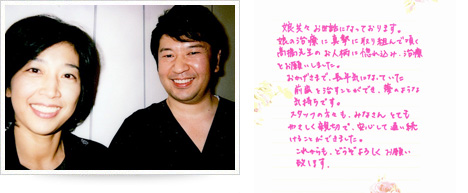 娘共々お世話になっております。
娘の治療に真摯に取り組んで頂く
高橋先生のお人柄に惚れ込み、治療
をお願いしました。
おかげさまで、長年気になっていた
前歯を治すことができ、夢のような
気持ちです。
スタッフの方々も、みなさん とても
やさしく親切で、安心して通い続
けることができました。
これからも、どうぞよろしくお願い
致します。